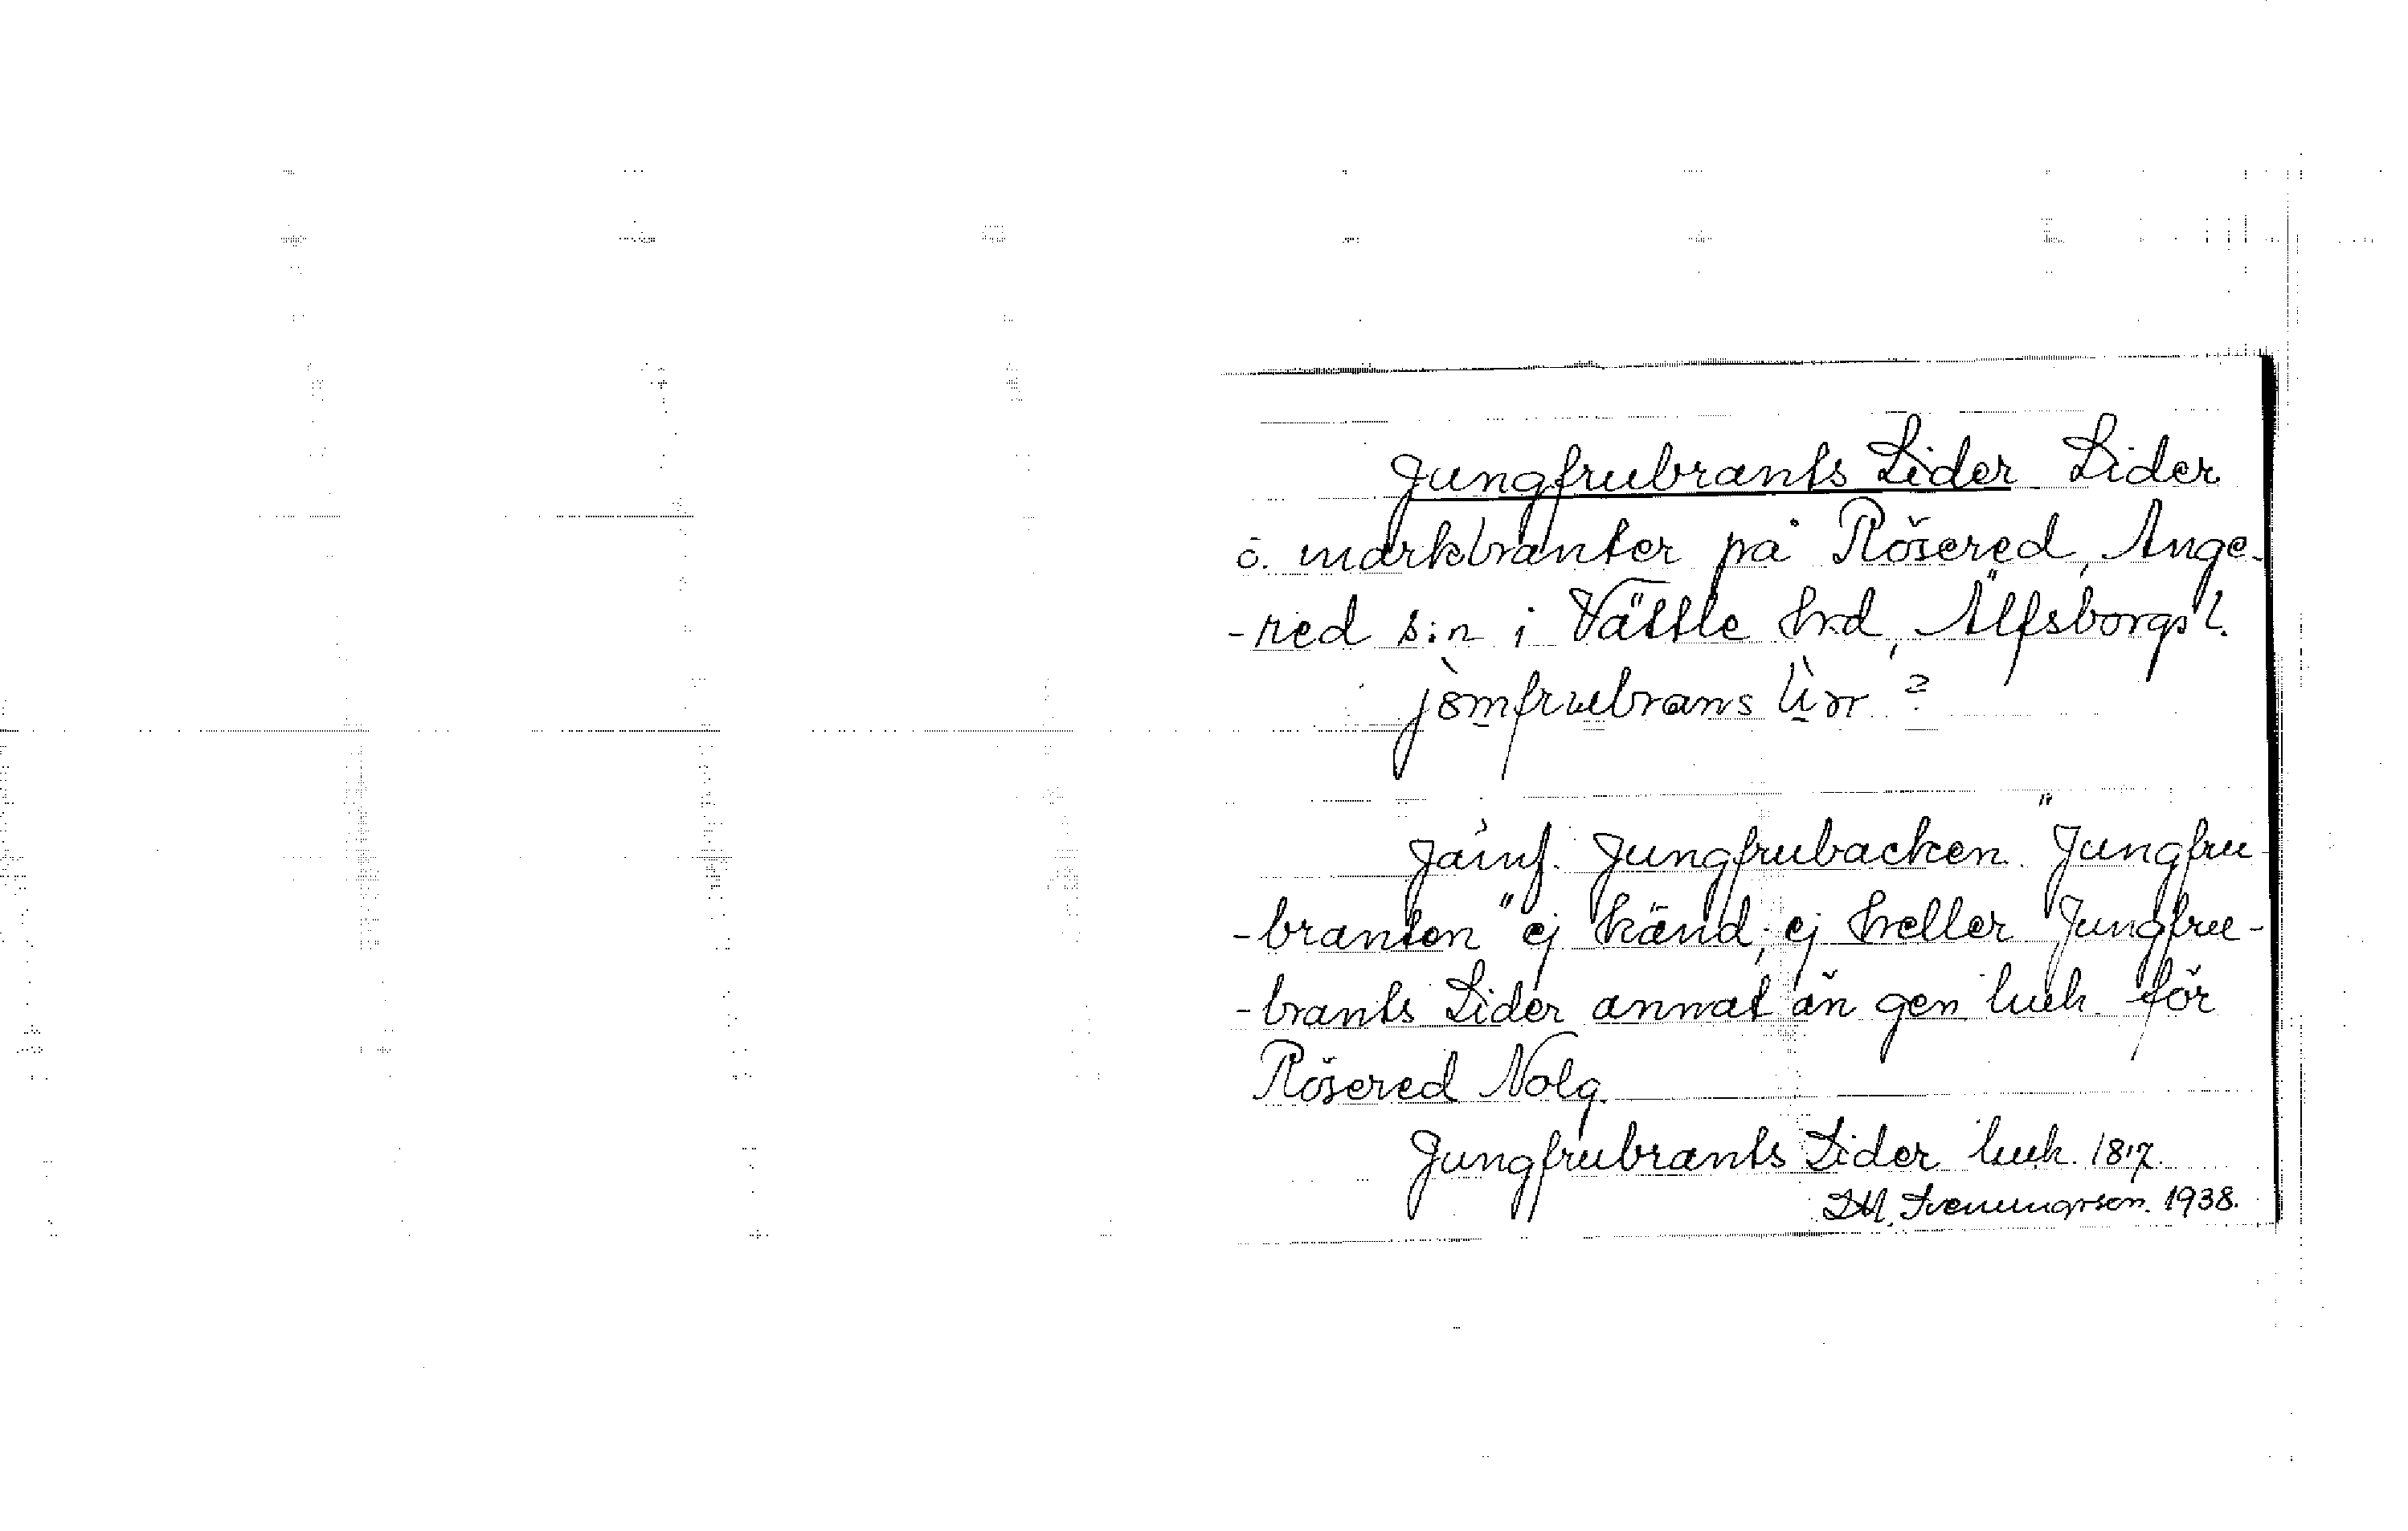 Jungfrubrants Lider Lider
o. markbranter på Rösered, Ange-
-red s:n i Vättle hrd, Älfsborgs l.
jomfrubrans
Jämf. Jungfrubacken. "Jungfru-
-branten" ej känd, ej heller Jungfru-
-brants Lider annat än gen. luk. för
Rösered Nolg.
Jungfrubrants Lider luk. 1817.
1938.